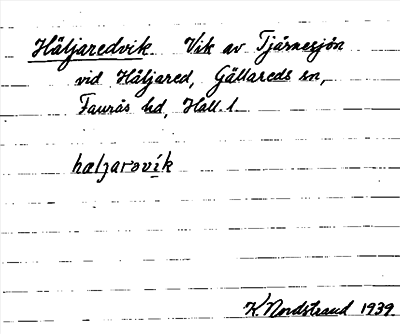 Häljaredvik Vik av Tjärnesjön
vid Häljared, Gällareds sn,
Faurås hd, Hall. l.
hæljarəvik
K. Nordstrand 1939.